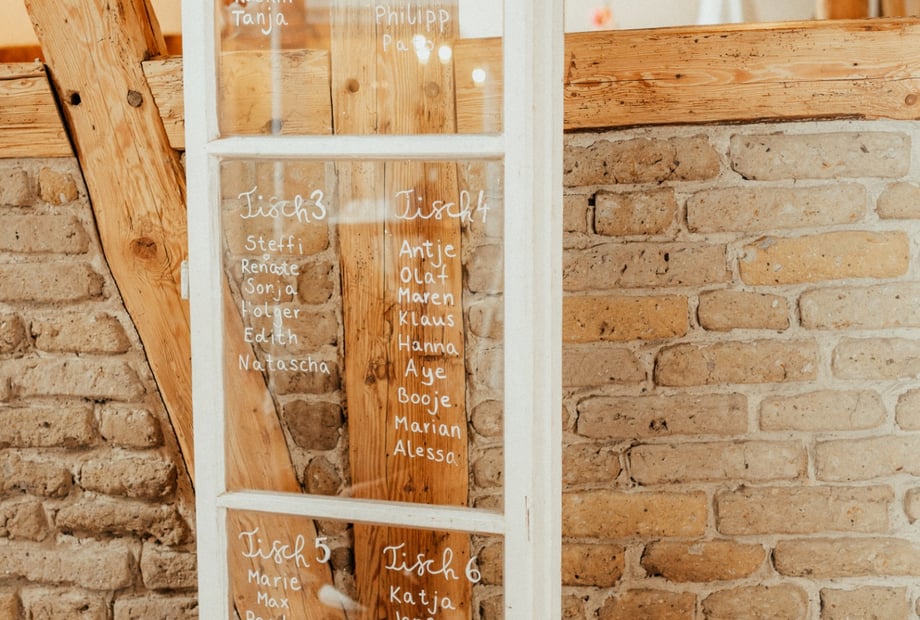 Tanja
Philipp
Tisch 3
Steffi
Renate
Sonja
Holger
Edith
Natascha
Tisch 4
Antje
Olaf
Maren
Klaus
Hanna
Aye
Booje
Marian
Alessa
Tisch 5
Marie
Max
Tisch 6
Katja